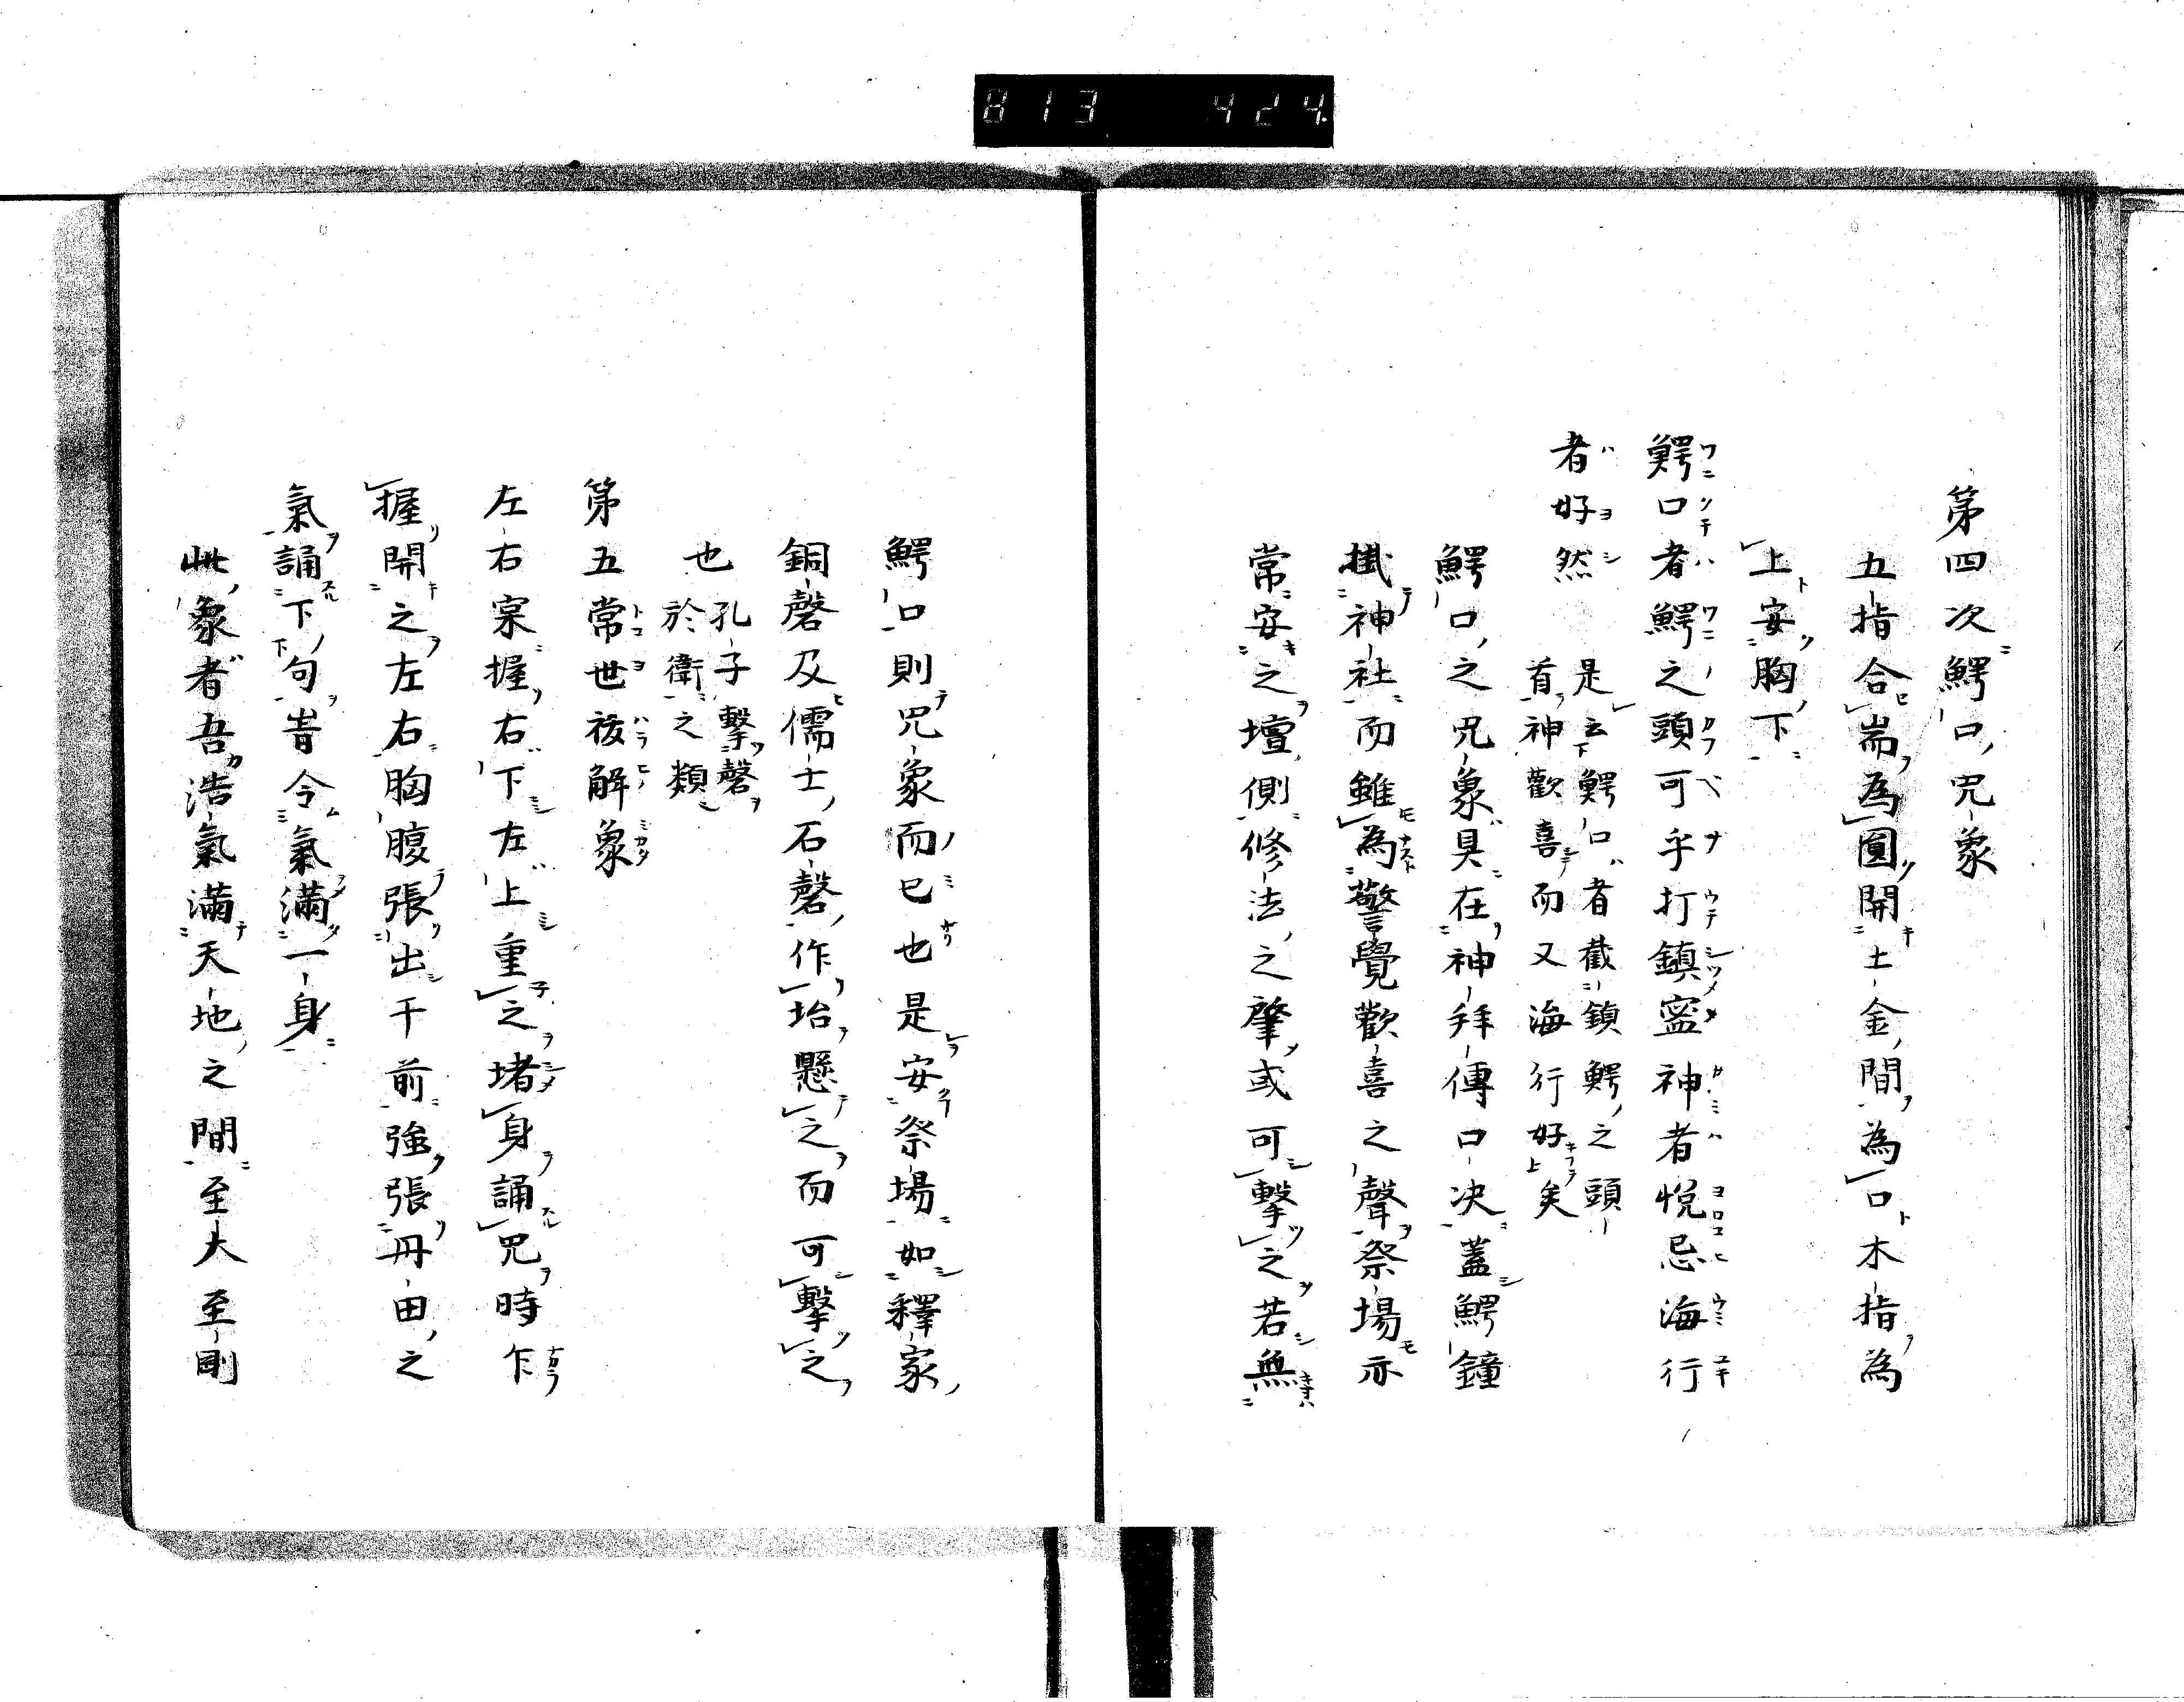 813 424
第四次鰐口咒象
五指合耑為圓開土金間為口木指為
上安胸下
鰐口者鰐之頭可乎打鎮寍神者悦忌海行
者好然
是云鰐口者截鎮鰐之頭
首神歡喜而又海行好矣
鰐口之咒象具在神拜傳口決蓋鰐鐘
掛神社而雖為警覺歡喜之聲祭場亦
常安之壇側修法之肇或可擊之若無
鰐口則咒象而已也是安祭場如釋家
銅磬及儒士石磬作坮懸之而可擊之
也
孔子擊磬
於衛之類
第五常世祓解象
左右宲握右下左上重之堵身誦咒時乍
握開之左右胸腹張出于前強張丹田之
氣誦下句旹令氣滿一身
此象者吾浩氣滿天地之間至大至剛